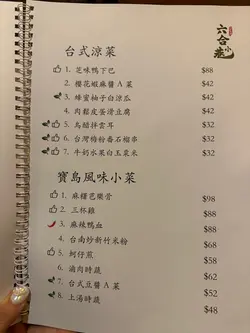 六合小巷
台式涼菜
1. 芝味鴨下巴 $88
2. 櫻花蝦麻醬A菜 $42
3. 蜂蜜柚子白涼瓜 $42
4. 肉鬆皮蛋滑豆腐 $42
5. 烏醋拌雲耳 $32
6. 台灣梅粉番石榴串 $32
7. 牛奶水果白玉凍米 $32
寶島風味小菜
1. 麻糬芭樂骨 $98
2. 三杯雞 $88
3. 麻辣鴨血 $88
4. 台南炒新竹米粉 $68
5. 蚵仔煎 $68
6. 滷肉時蔬 $62
7. 台式豆醬A菜 $52
8. 上湯時蔬 $48